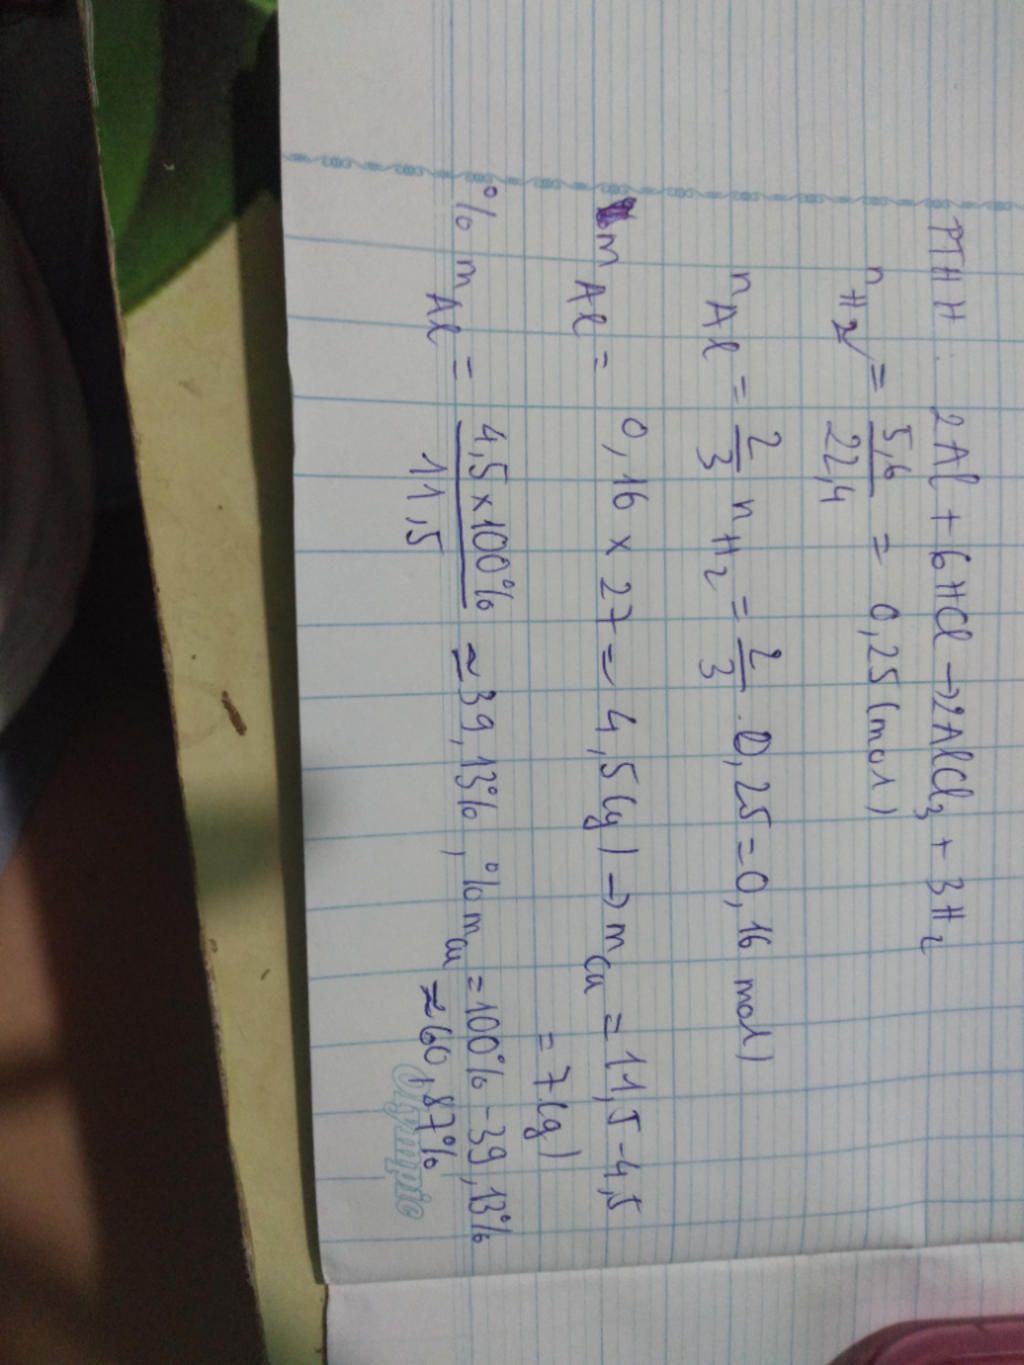 PTHH. 2Al + 6HCl → 2AlCl3 + 3H2
nH2 = 5,6/22,4 = 0,25 (mol)
nAl = 2/3 nH2 = 2/3 . 0,25 = 0,16 mol)
mAl = 0,16 x 27 = 4,5 (g) → mCu = 11,5 - 4,5
= 7 (g)
% mAl = 4,5 x 100%/11,5 ≈ 39,13%, % mCu = 100% - 39,13%
≈ 60,87%
Olympic